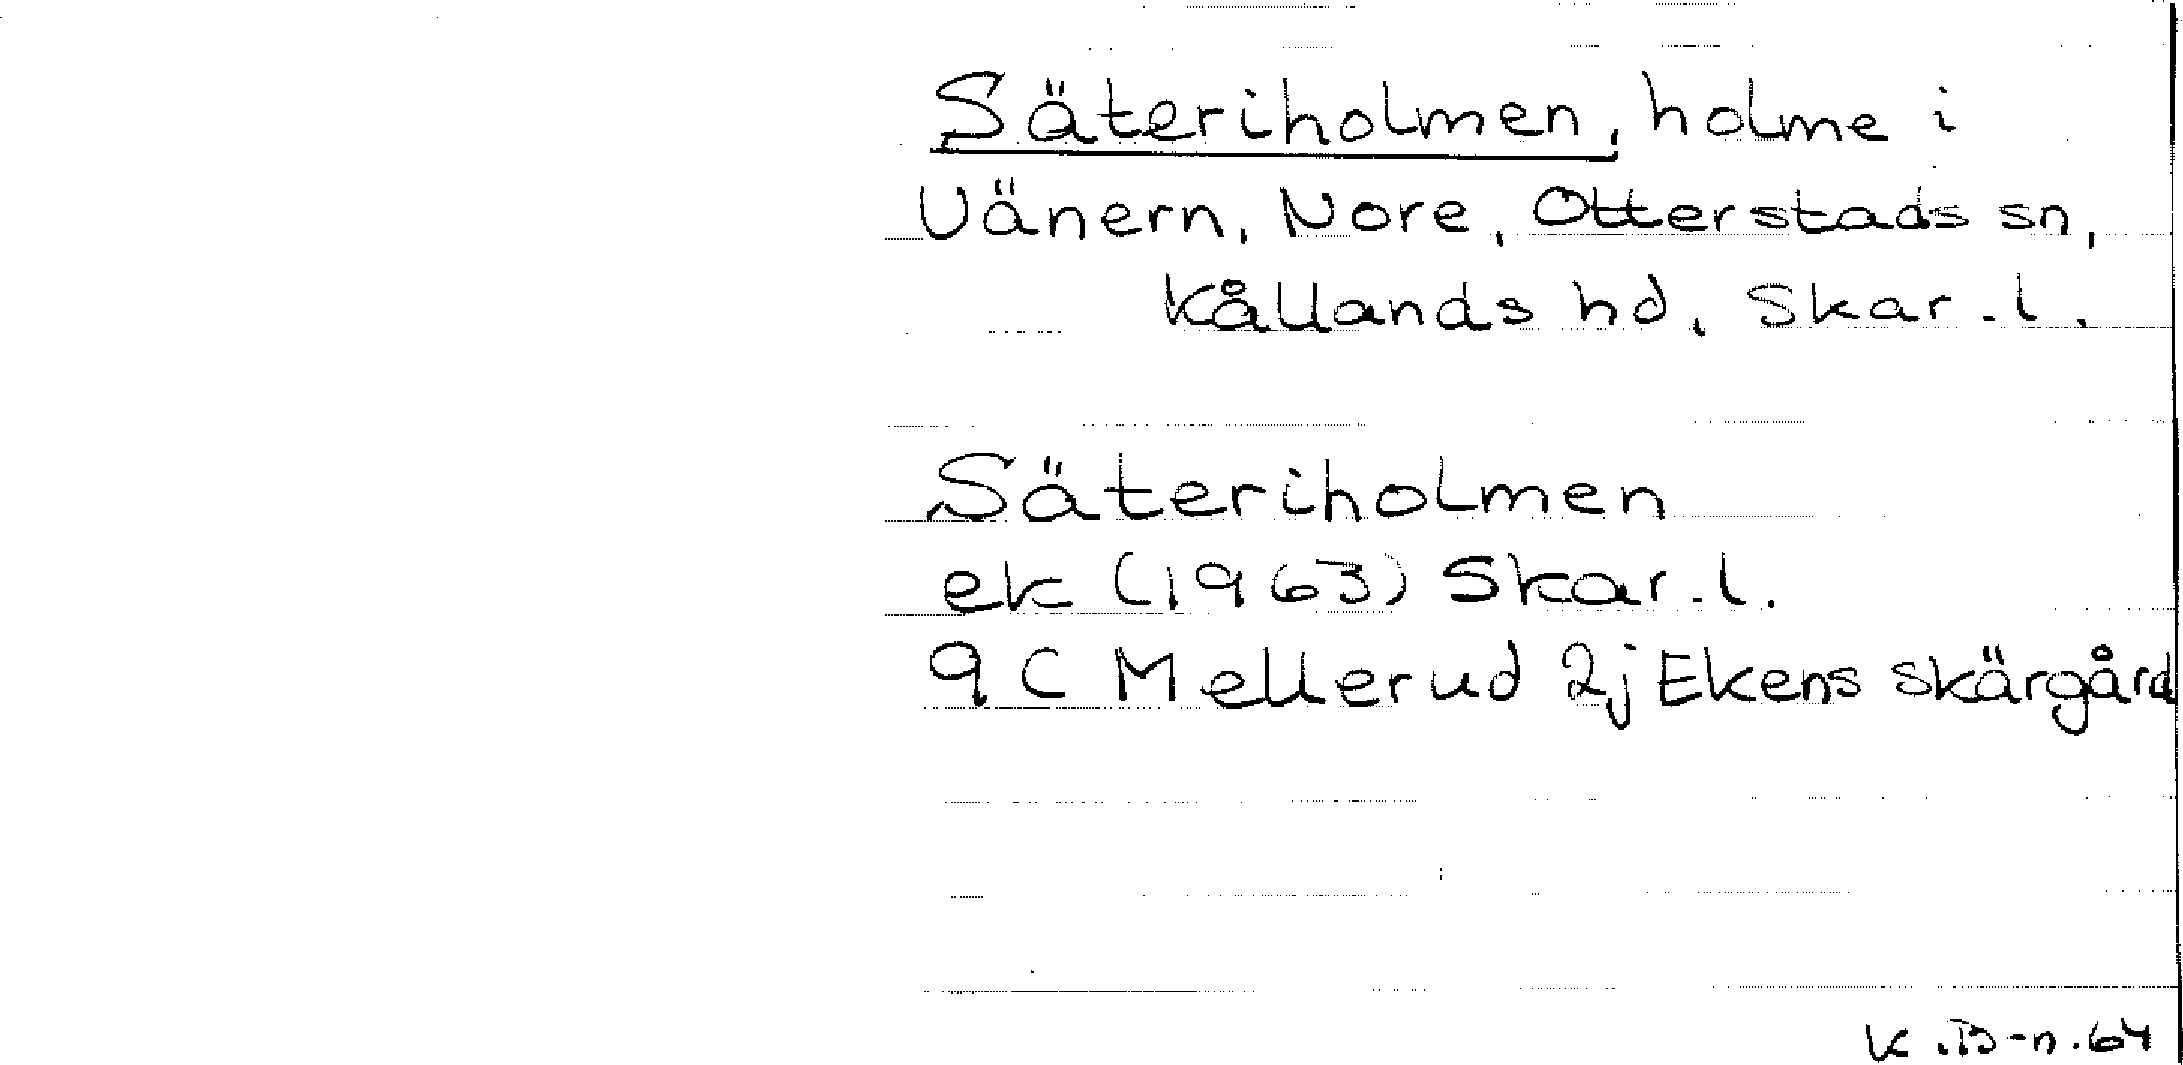 Säteriholmen, holme i
Vänern, Nore, Otterstads sn,
Kållands hd, Skar.l.
Säteriholmen
ek (1963) Skar.l.
9C Mellerud 2j Ekens skärgård
K.B-n.64